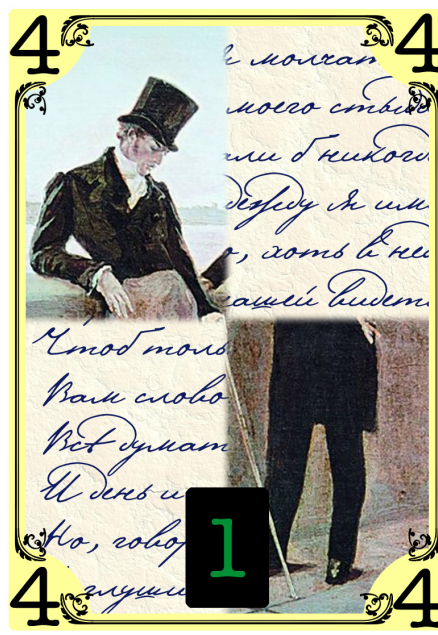 4 4
я молчат
моего стыд
али б никогд
дежду я им
о, хоть в не
ашей видет
Чтоб толь
Вам слово
Всё думат
И день и
Но, говор
глуши
1
4 4